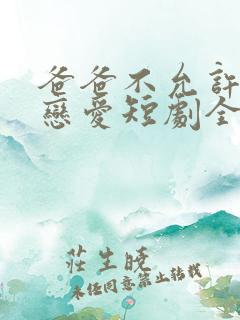 爸爸不允許
戀愛短劇全
莊生曉
未任同意禁止转载